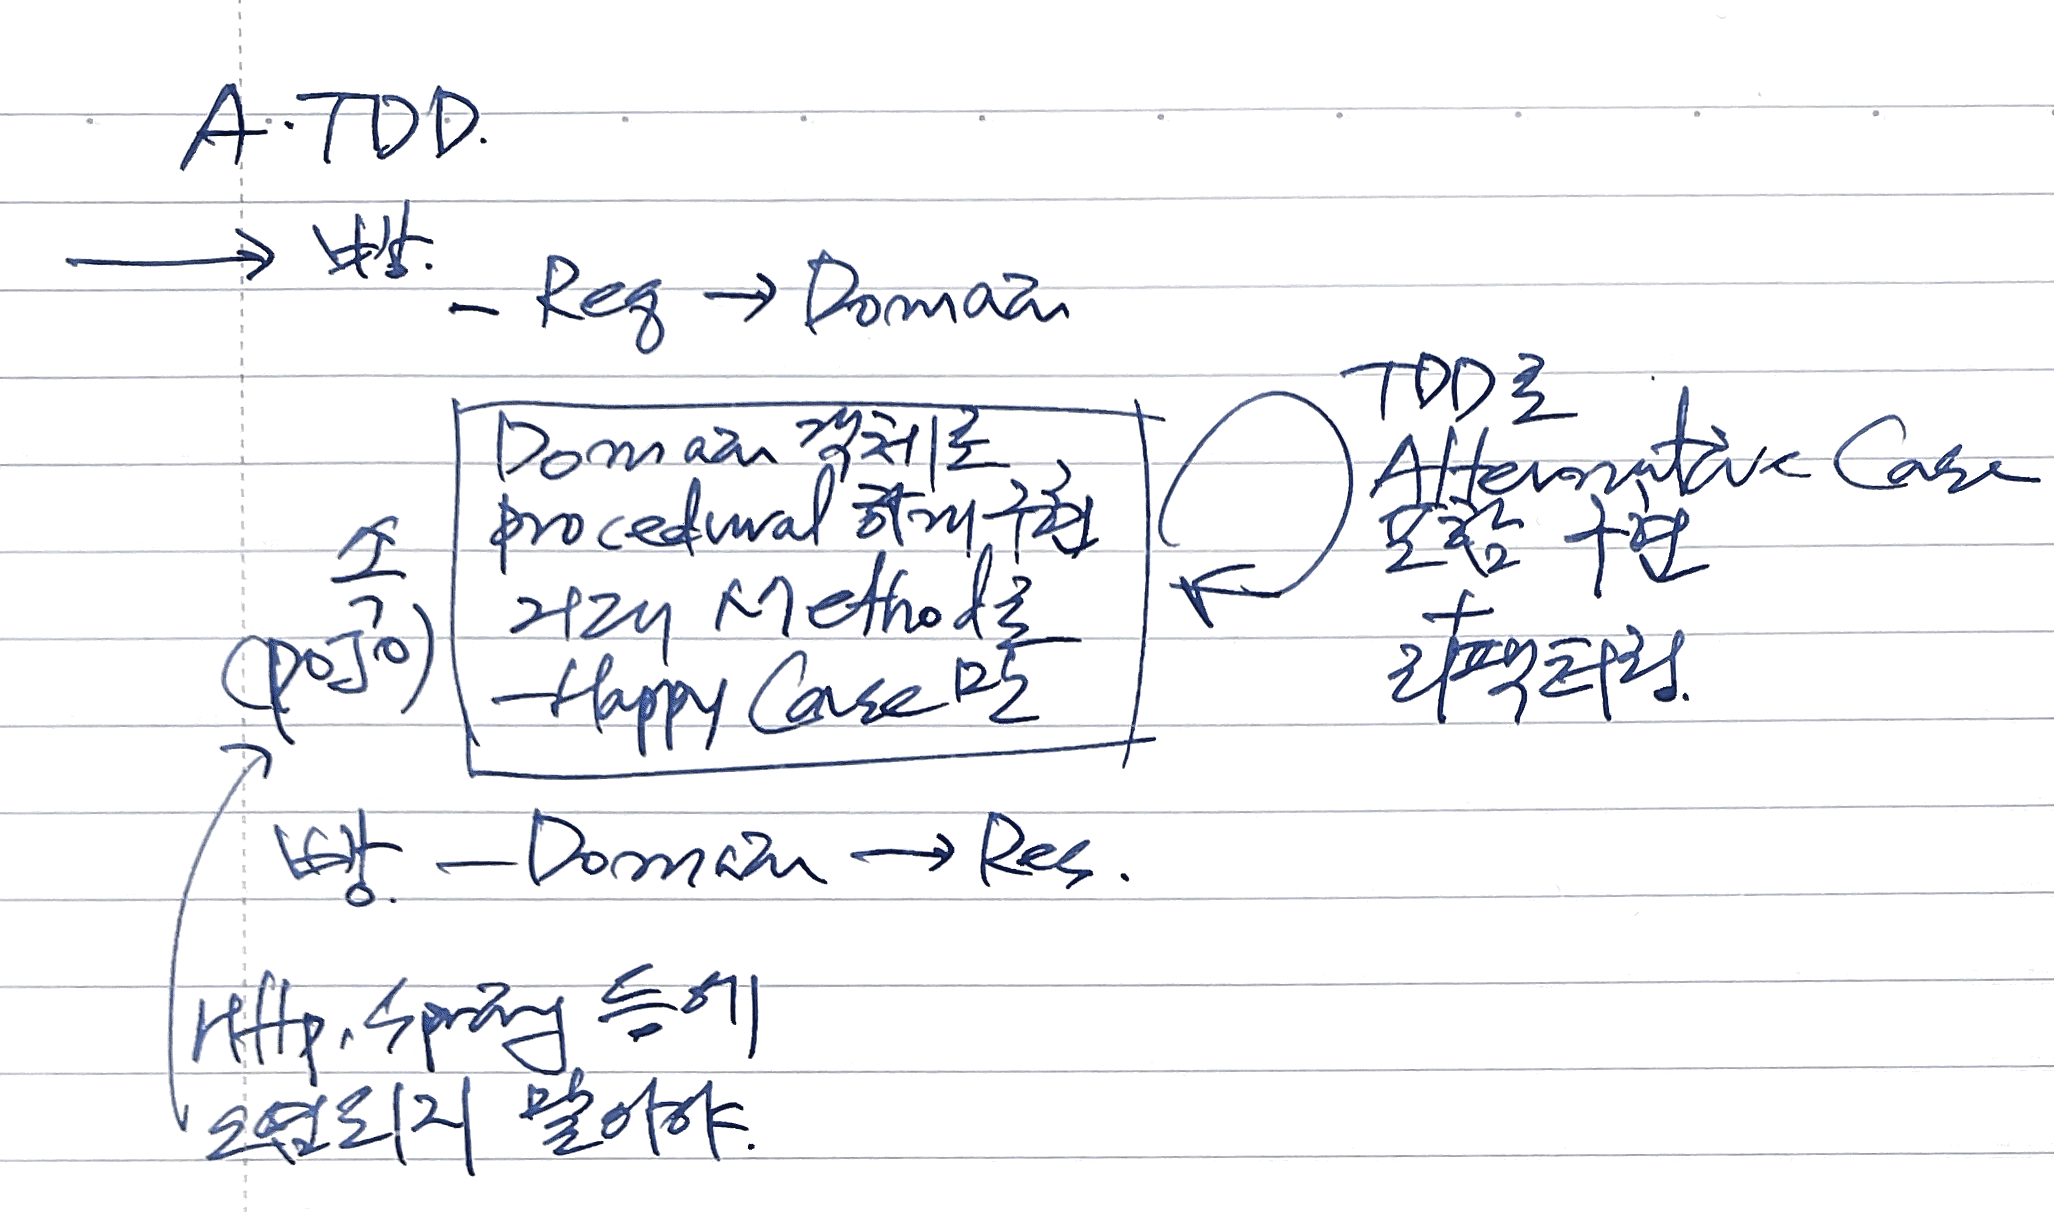 A.TDD.
→ 빵.
- Req → Domain
속
(POJO)
Domain 객체로
procedural 하게 구현
거대 Method로
- Happy Case 만
TDD로
Alternative Case
포함 구현
+
리팩터링.
빵. - Domain → Res.
Http, Spring 등에
오염되지 말아야.